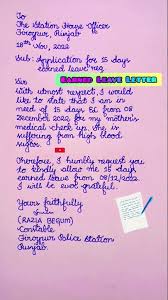 To
The Station House Officer
Firozpur, Punjab
18th Nov, 2022
Sub: Application for 15 days
earned leave req
Earned Leave Letter
Sir
With utmost respect, I would
like to state that I am in
need of 15 days EL from 08
December, 2022, for my mother's
medical check up. She is
suffering from high blood
sugar.
Therefore, I humbly request you
to kindly allow me 15 days
earned leave from 08/12/2022.
I will be ever grateful.
Yours faithfully
(RAZIA BEGUM)
Constable
Firozpur Police Station
Punjab.